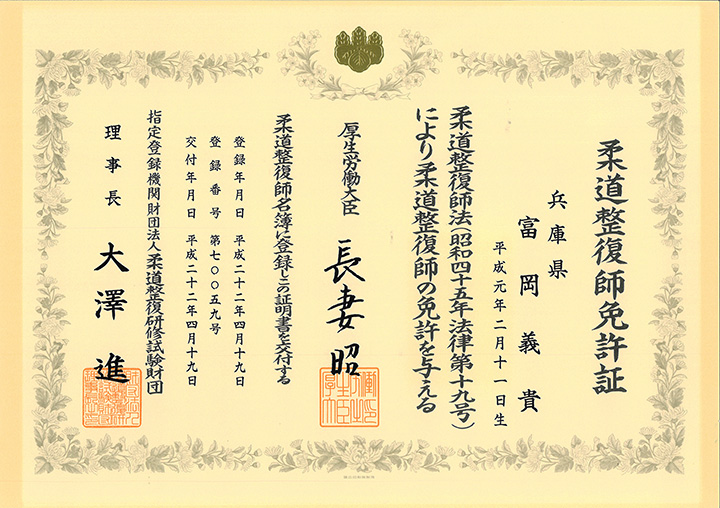 柔道整復師免許証
兵庫県
富岡義貴
平成元年二月十一日生
柔道整復師法(昭和四十五年法律第十九号)
により柔道整復師の免許を与える
厚生労働大臣 長妻昭
柔道整復師名簿に登録しこの証明書を交付する
登録年月日 平成二十二年四月十九日
登録番号 第七〇〇五九号
交付年月日 平成二十二年四月十九日
指定登録機関財団法人柔道整復研修試験財団
理事長 大澤進